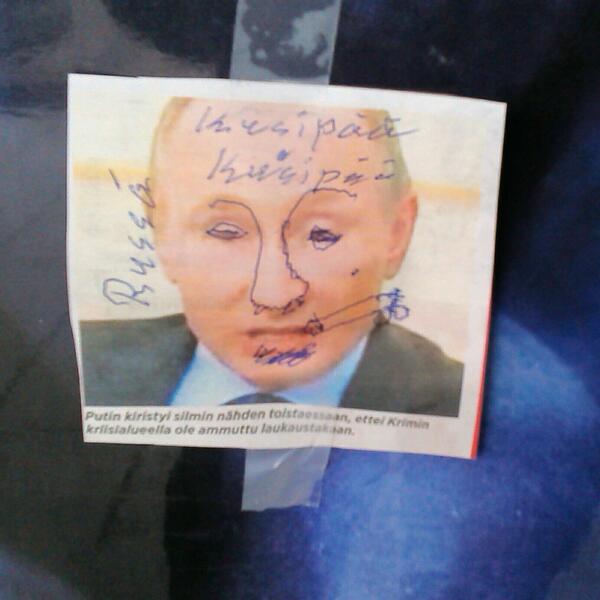 Kusipää
Kusipää
Russä
Putin kiristyi silmin nähden toistaessaan, ettei Krimin
kriisialueella ole ammuttu laukaustakaan.